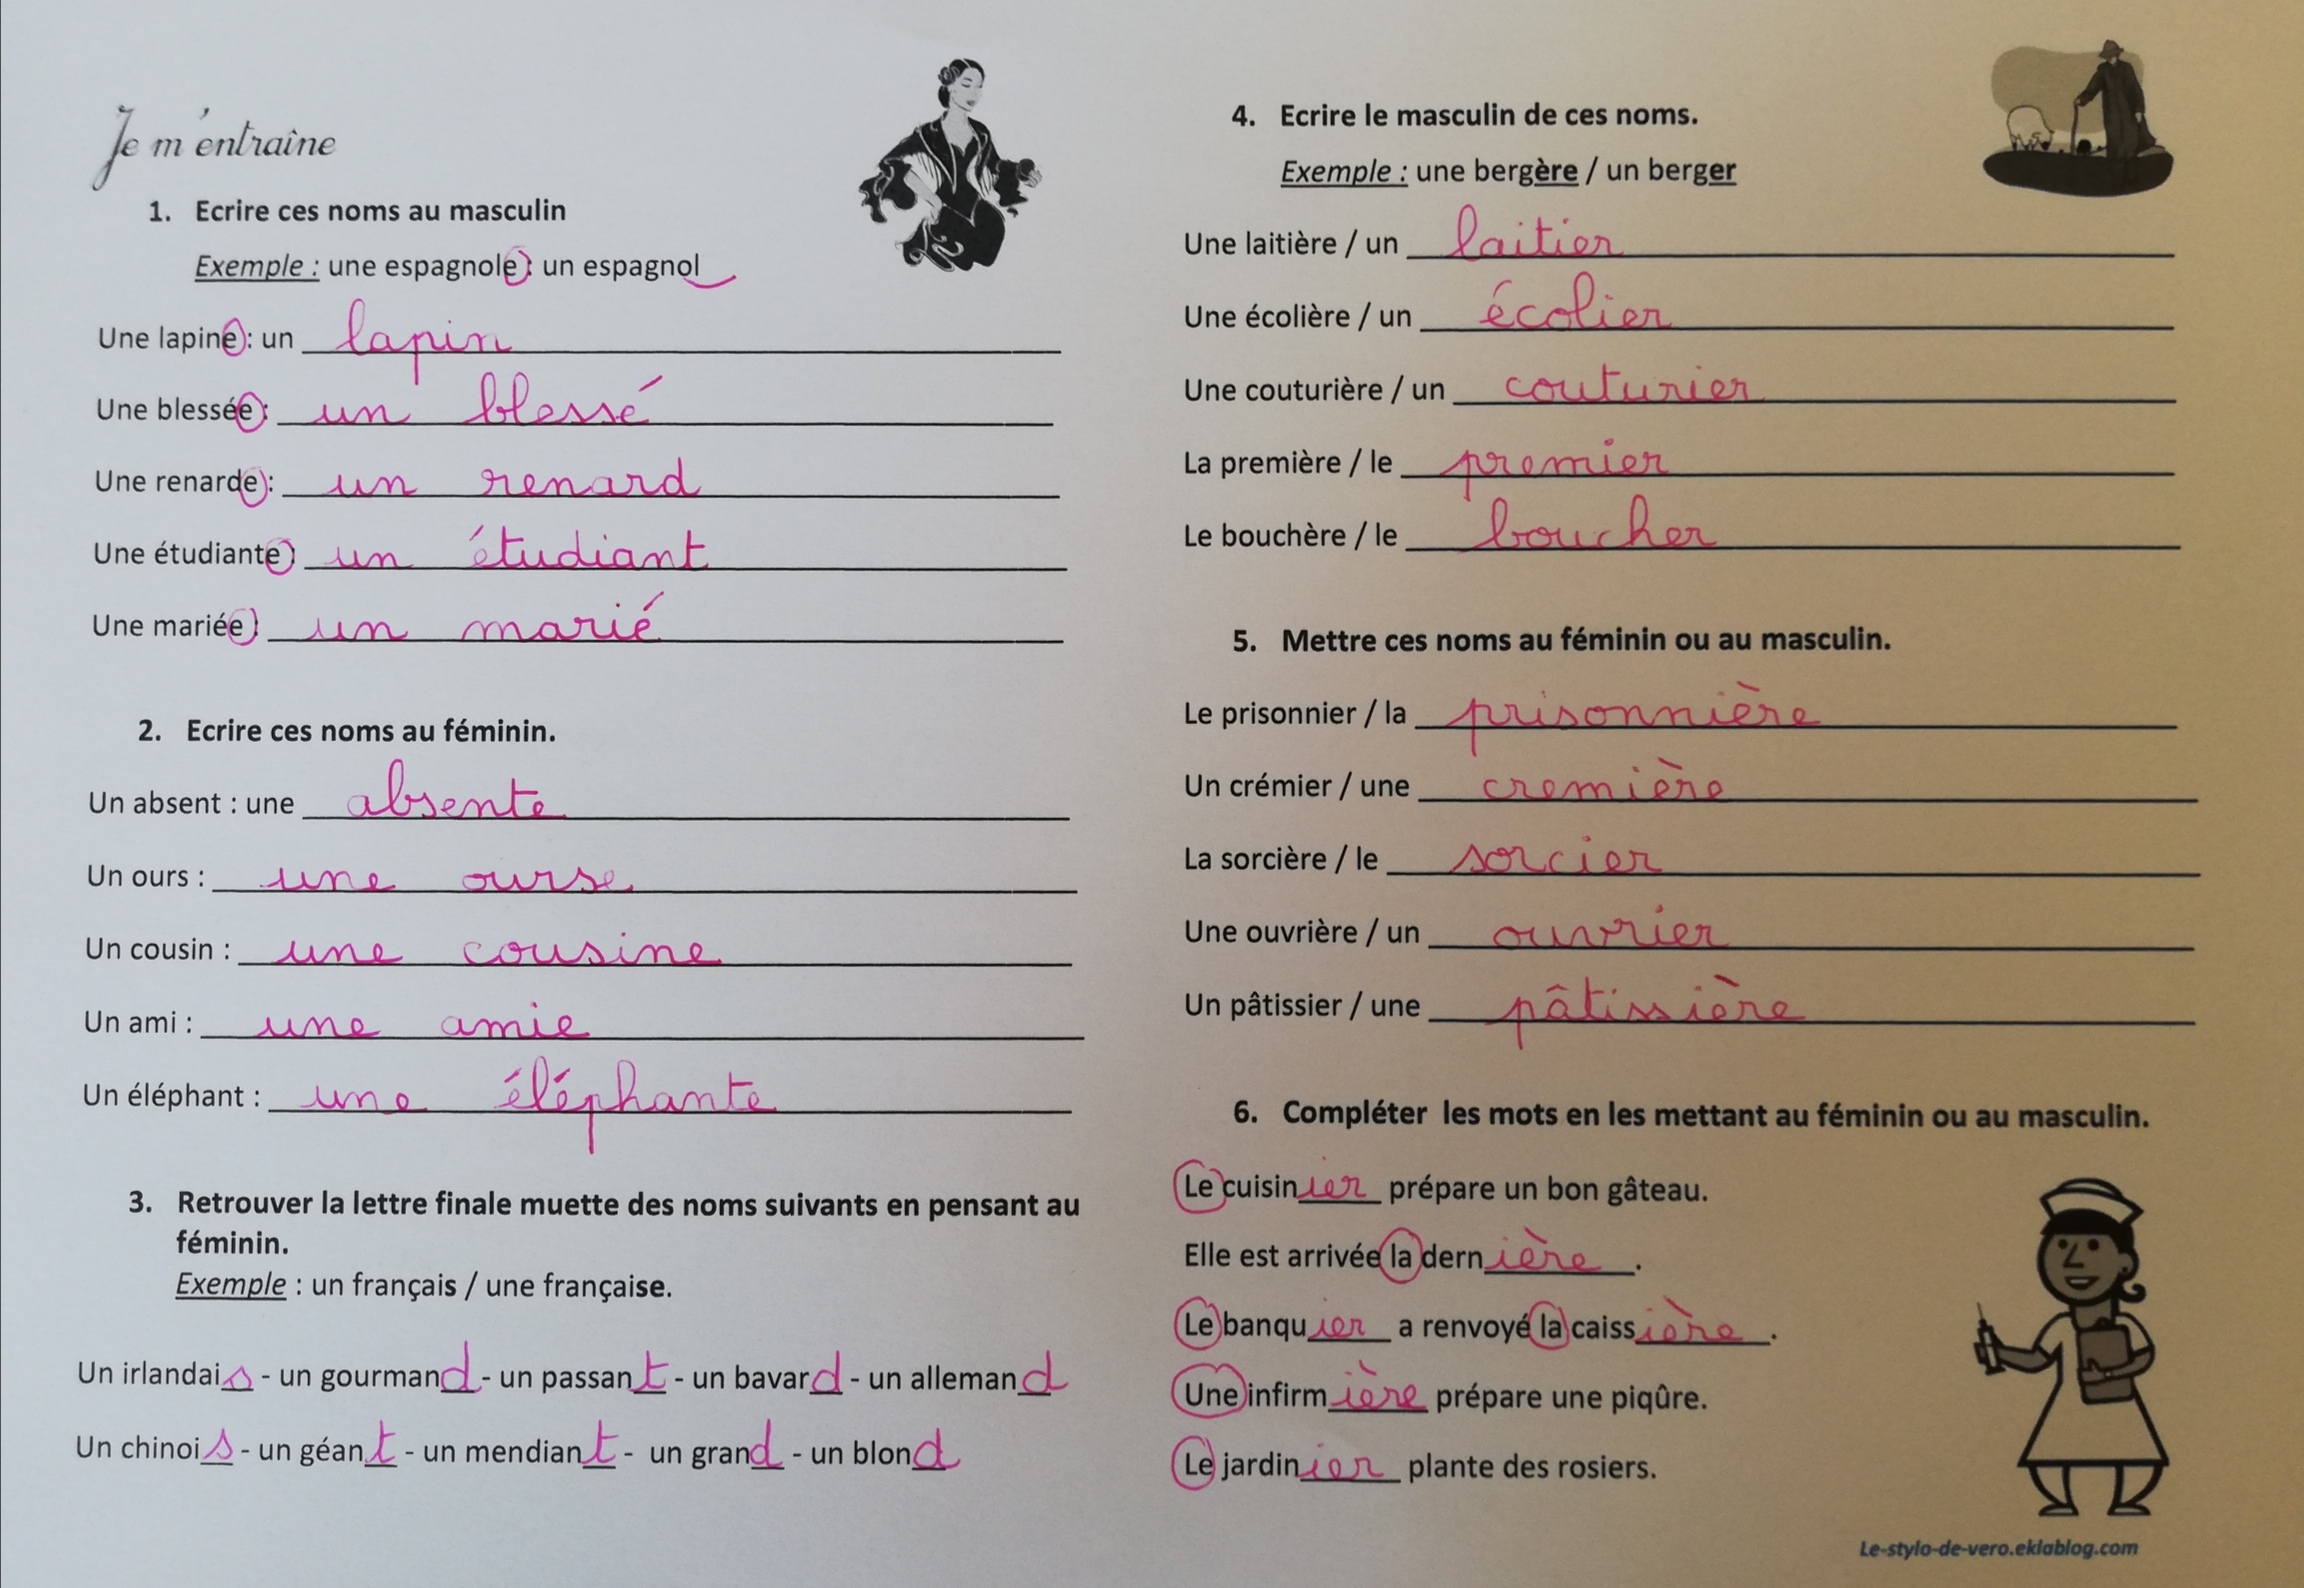 Je m'entraîne
1. Ecrire ces noms au masculin
Exemple : une espagnole : un espagnol
Une lapine : un lapin
Une blessée : un blessé
Une renarde : un renard
Une étudiante : un étudiant
Une mariée : un marié
2. Ecrire ces noms au féminin.
Un absent : une absente
Un ours : une ourse
Un cousin : une cousine
Un ami : une amie
Un éléphant : une éléphante
3. Retrouver la lettre finale muette des noms suivants en pensant au
féminin.
Exemple : un français / une française.
Un irlandais - un gourmand - un passant - un bavard - un allemand
Un chinois - un géant - un mendiant - un grand - un blond
4. Ecrire le masculin de ces noms.
Exemple : une bergère / un berger
Une laitière / un laitier
Une écolière / un écolier
Une couturière / un couturier
La première / le premier
Le bouchère / le boucher
5. Mettre ces noms au féminin ou au masculin.
Le prisonnier / la prisonnière
Un crémier / une cremière
La sorcière / le sorcier
Une ouvrière / un ouvrier
Un pâtissier / une pâtissière
6. Compléter les mots en les mettant au féminin ou au masculin.
Le cuisinier prépare un bon gâteau.
Elle est arrivée la dernière.
Le banquier a renvoyé la caissière.
Une infirmière prépare une piqûre.
Le jardinier plante des rosiers.
Le-stylo-de-vero.eklablog.com